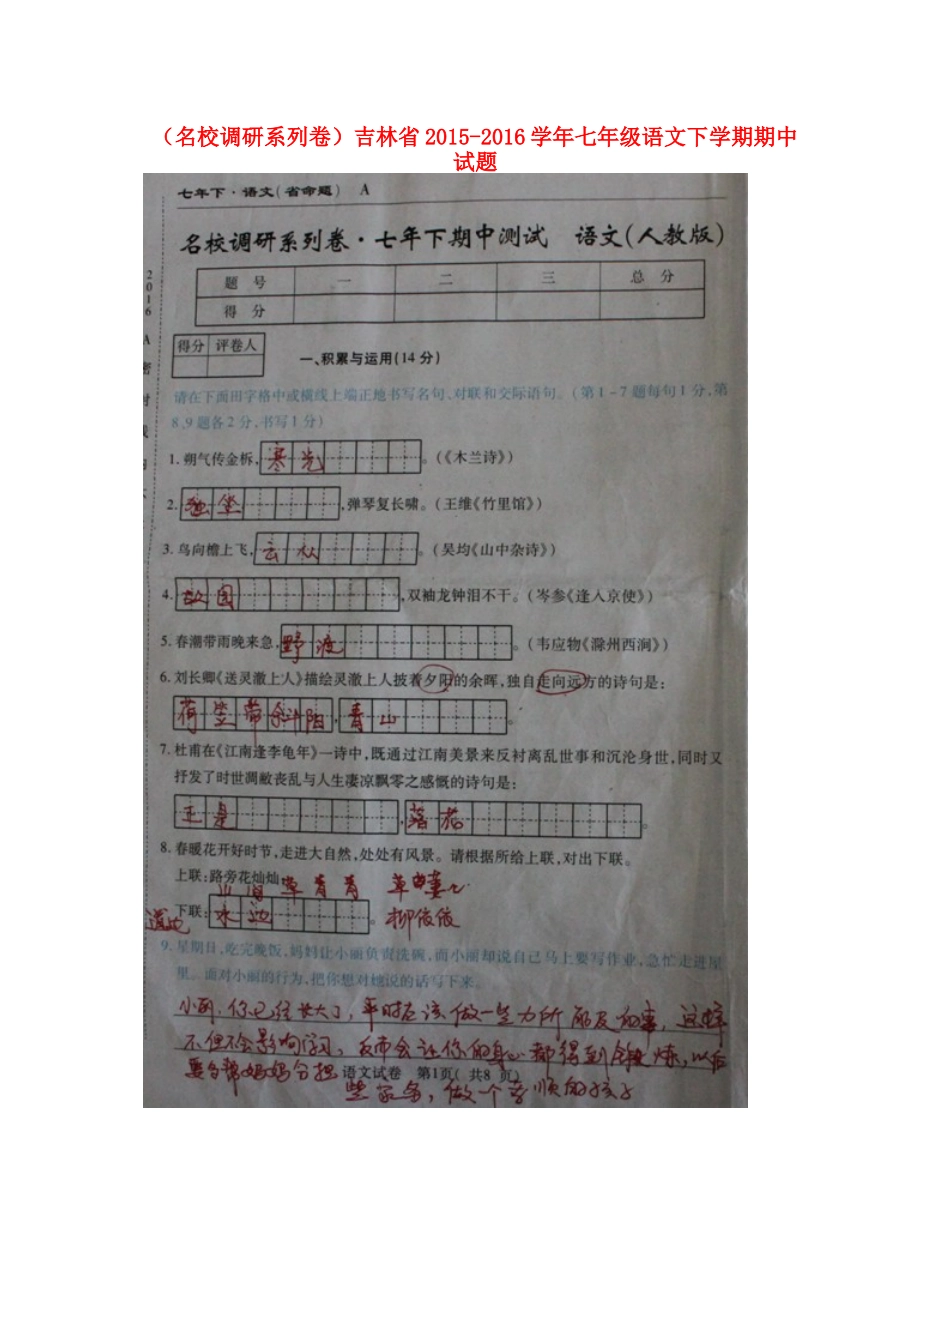 （名校调研系列卷）吉林省 2015-2016 学年七年级语文下学期期中
试题
七年下·语文(省命题) A
名校调研系列卷·七年下期中测试 语文(人教版)
题 号 一 二 三 总 分
得 分
得分 评卷人
一、积累与运用(14 分)
请在下面田字格中或横线上端正地书写名句、对联和交际语句。(第 1－7 题每句 1 分,第
8、9 题各 2 分,书写 1 分)
1. 朔气传金柝, 寒光 。(《木兰诗》)
2. 独坐 ,弹琴复长啸。(王维《竹里馆》)
3. 鸟向檐上飞, 云从 。(吴均《山中杂诗》)
4. 故园 ,双袖龙钟泪不干。(岑参《逢入京使》)
5. 春潮带雨晚来急, 野渡 。(韦应物《滁州西涧》)
6. 刘长卿《送灵澈上人》描绘灵澈上人披着夕阳的余晖,独自走向远方的诗句是:
荷笠带斜阳 , 青山 。
7. 杜甫在《江南逢李龟年》一诗中,既通过江南美景来反衬离乱世事和沉沦身世,同时又
抒发了时世凋敝丧乱与人生凄凉飘零之感慨的诗句是:
正是 , 落花 。
8. 春暖花开好时节,走进大自然,处处有风景。请根据所给上联,对出下联。
上联:路旁花灿灿
山间 草青青
下联: 水边 。 柳依依
道边
9. 星期日,吃完晚饭,妈妈让小丽负责洗碗,而小丽却说自己马上要写作业,急忙走进屋
里。面对小丽的行为,把你想对她说的话写下来。
小丽,你已经长大了,平时应该做一些力所能及的事,这样
不但不会影响学习,反而会让你的身心都得到锻炼,以后
要多帮妈妈分担
语文试卷 第1页( 共8 页)
些家务,做个孝顺的孩子
2016
A
密
封
线
内